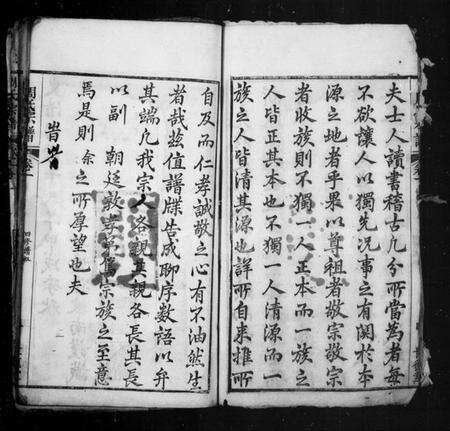 夫士人讀書稽古凡分所當為者每
不欲讓人以獨先况事之有關於本
源之地者乎果以尊祖者敬宗敬宗
者收族則不獨一人正本而一族之
人皆正其本也不獨一人清源而一
族之人皆清其源也詳所自来推所
自及而仁孝誠敬之心有不油然生
者哉兹值譜牒告成聊序数語以弁
其端凢我宗人各親其親各長其長
以副 朝廷敦孝 宗族之至意
焉是則余之所厚望也夫